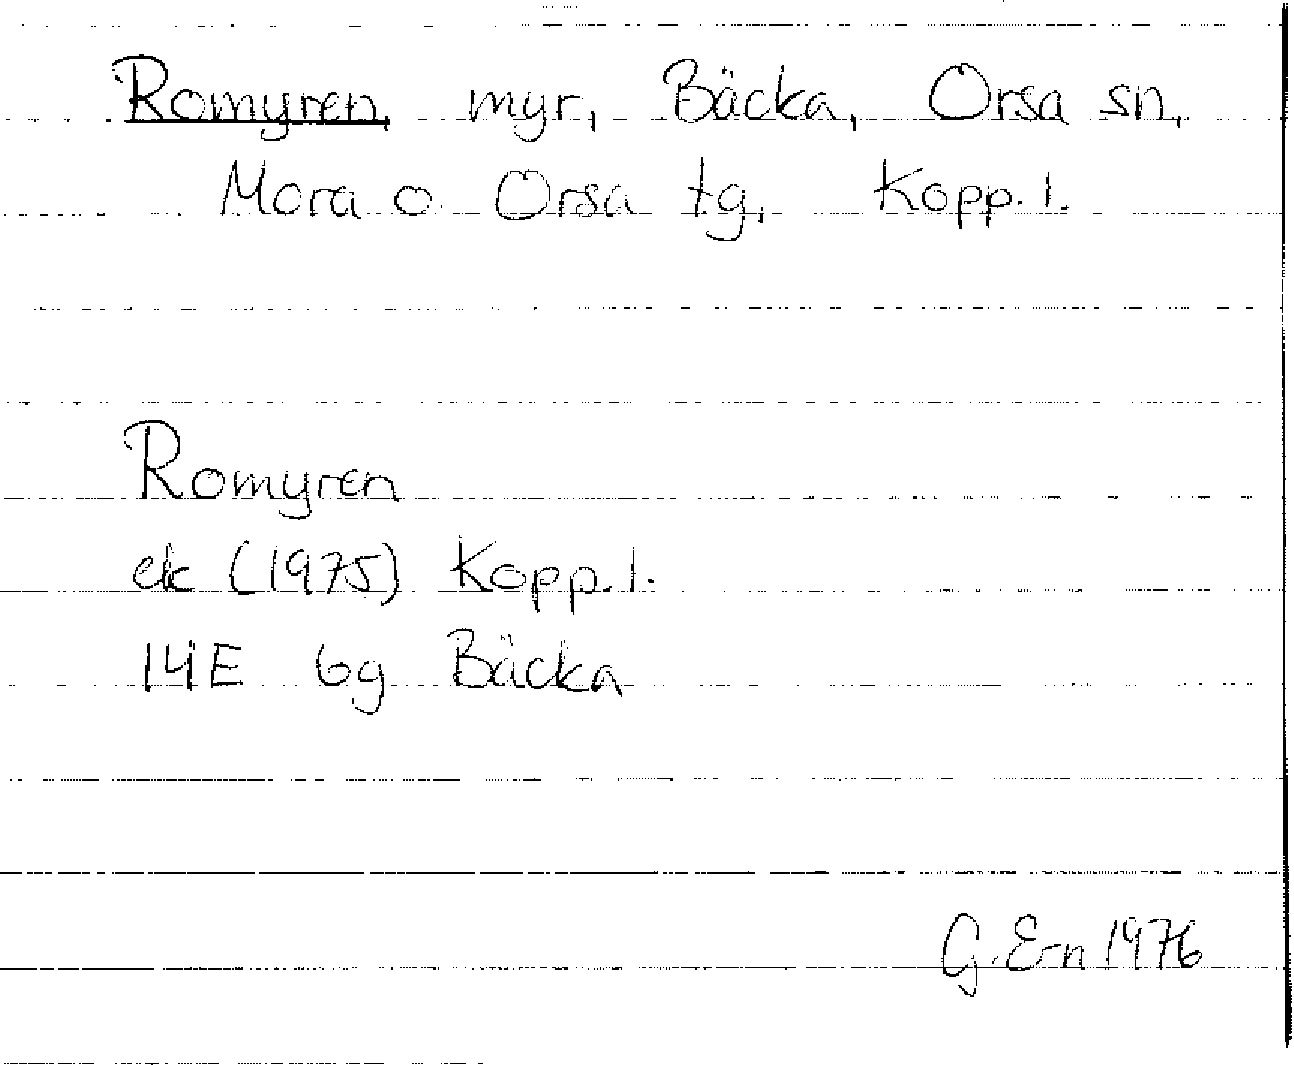 Romyren, myr, Bäcka, Orsa sn,
Mora o. Orsa tg, Kopp. l.
Romyren
ek (1975) Kopp. l.
14E 6g Bäcka
G. E-n 1976